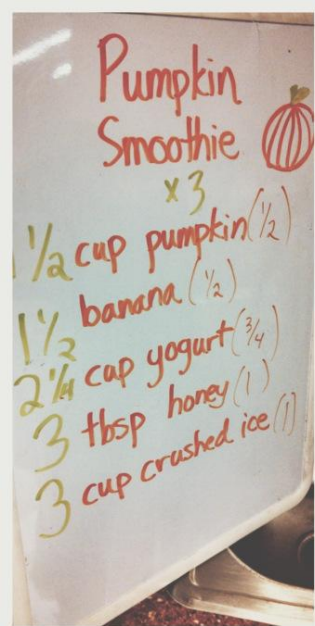 Pumpkin
Smoothie
x3
1 1/2 cup pumpkin (1/2)
1 1/2 banana (1/2)
2 1/4 cup yogurt (3/4)
3 tbsp honey (1)
3 cup crushed ice (1)